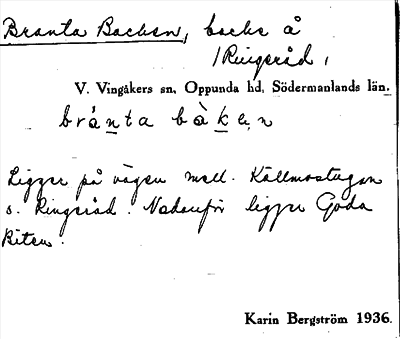 Branta Backen, backe å
/Ringsråd,
V. Vingåkers sn, Oppunda hd, Södermanlands län.
bránta bàken
Ligger på vägen mell. Källmostugan
o. Ringsråd. Nedanför ligger Goda
Biten.
Karin Bergström 1936.